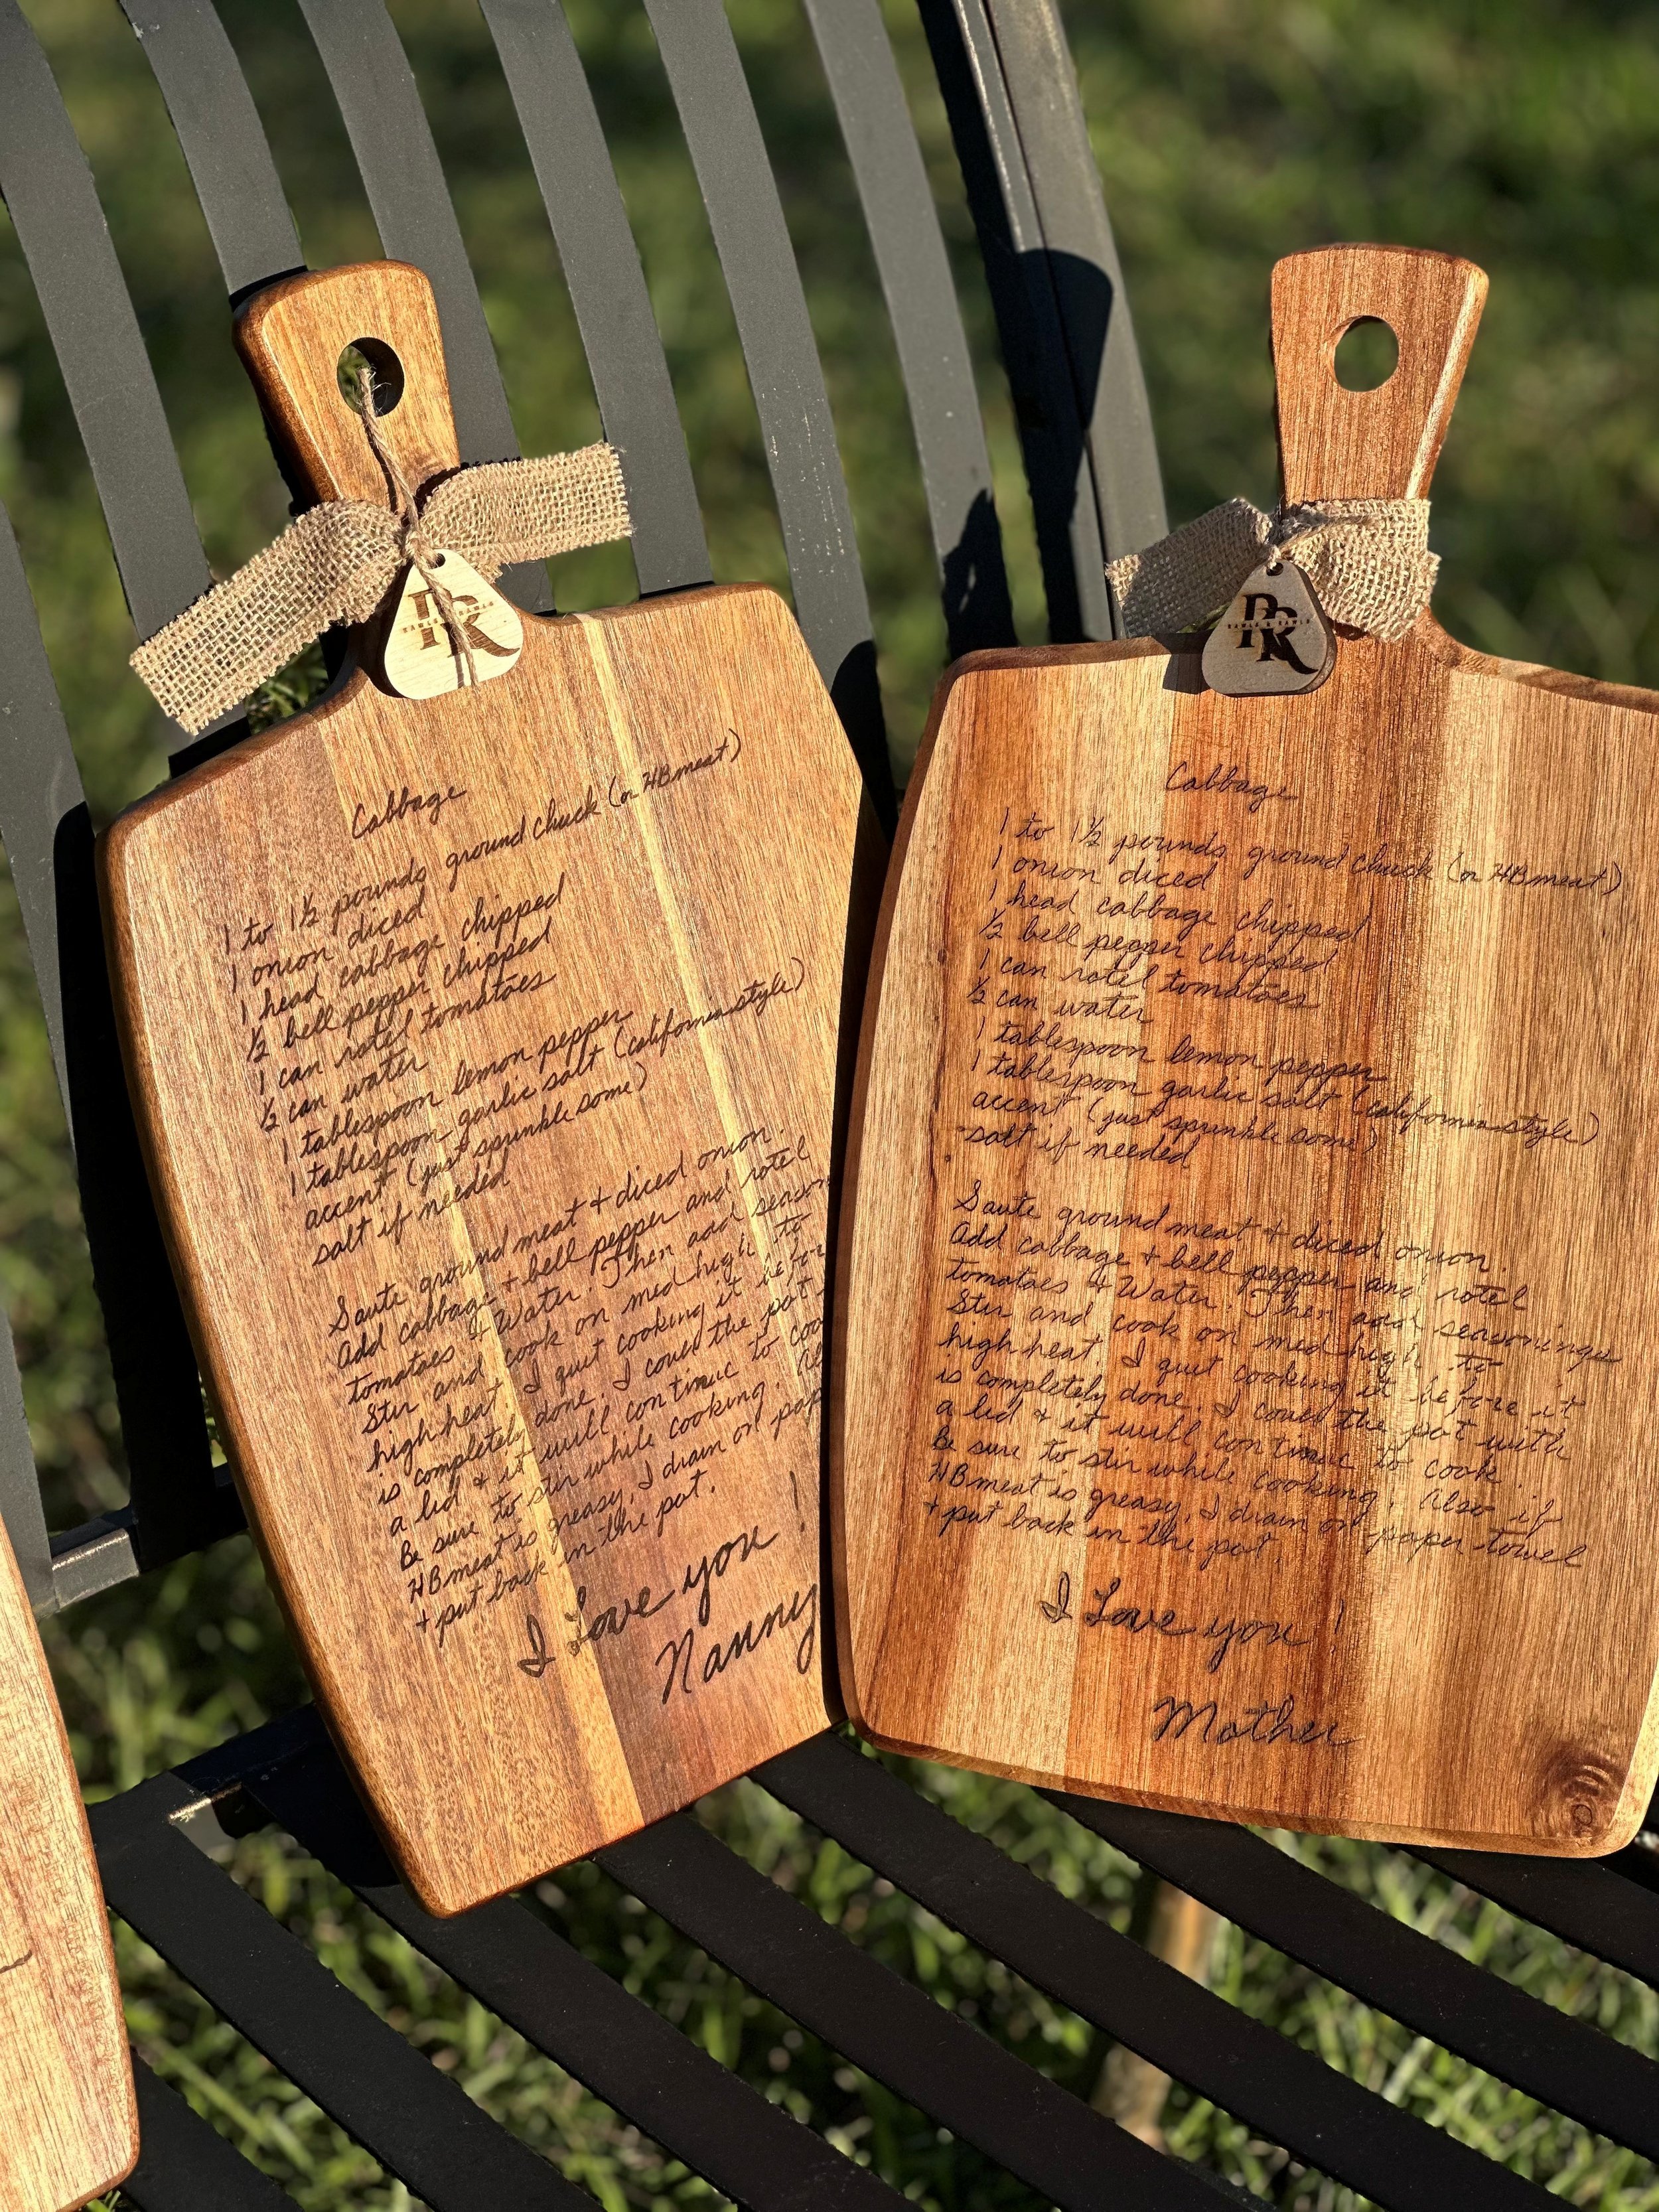 RK
Cabbage
1 to 1½ pounds ground chuck (or HB meat)
1 onion diced
1 head cabbage chipped
½ bell pepper chipped
1 can rotel tomatoes
½ can water
1 tablespoon lemon pepper
1 tablespoon garlic salt (california style)
accent (just sprinkle some)
salt if needed
Saute ground meat + diced onion.
Add cabbage + bell pepper and rotel
tomatoes + Water. Then add season
Stir and cook on med high to
high heat. I quit cooking it befor
is completely done. I cover the pot
a lid + it will continue to coo
Be sure to stir while cooking. Al
HB meat is greasy, I drain on pap
+ put back in the pot.
I Love you!
Nanny
RK
Cabbage
1 to 1½ pounds ground chuck (or HB meat)
1 onion diced
1 head cabbage chipped
½ bell pepper chipped
1 can rotel tomatoes
½ can water
1 tablespoon lemon pepper
1 tablespoon garlic salt (california style)
accent (just sprinkle some)
salt if needed
Saute ground meat + diced onion.
Add cabbage + bell pepper and rotel
tomatoes + Water. Then add seasonings
Stir and cook on med high to
high heat. I quit cooking it before it
is completely done. I cover the pot with
a lid + it will continue to cook.
Be sure to stir while cooking. Also if
HB meat is greasy, I drain on paper towel
+ put back in the pot.
I Love you!
Mother